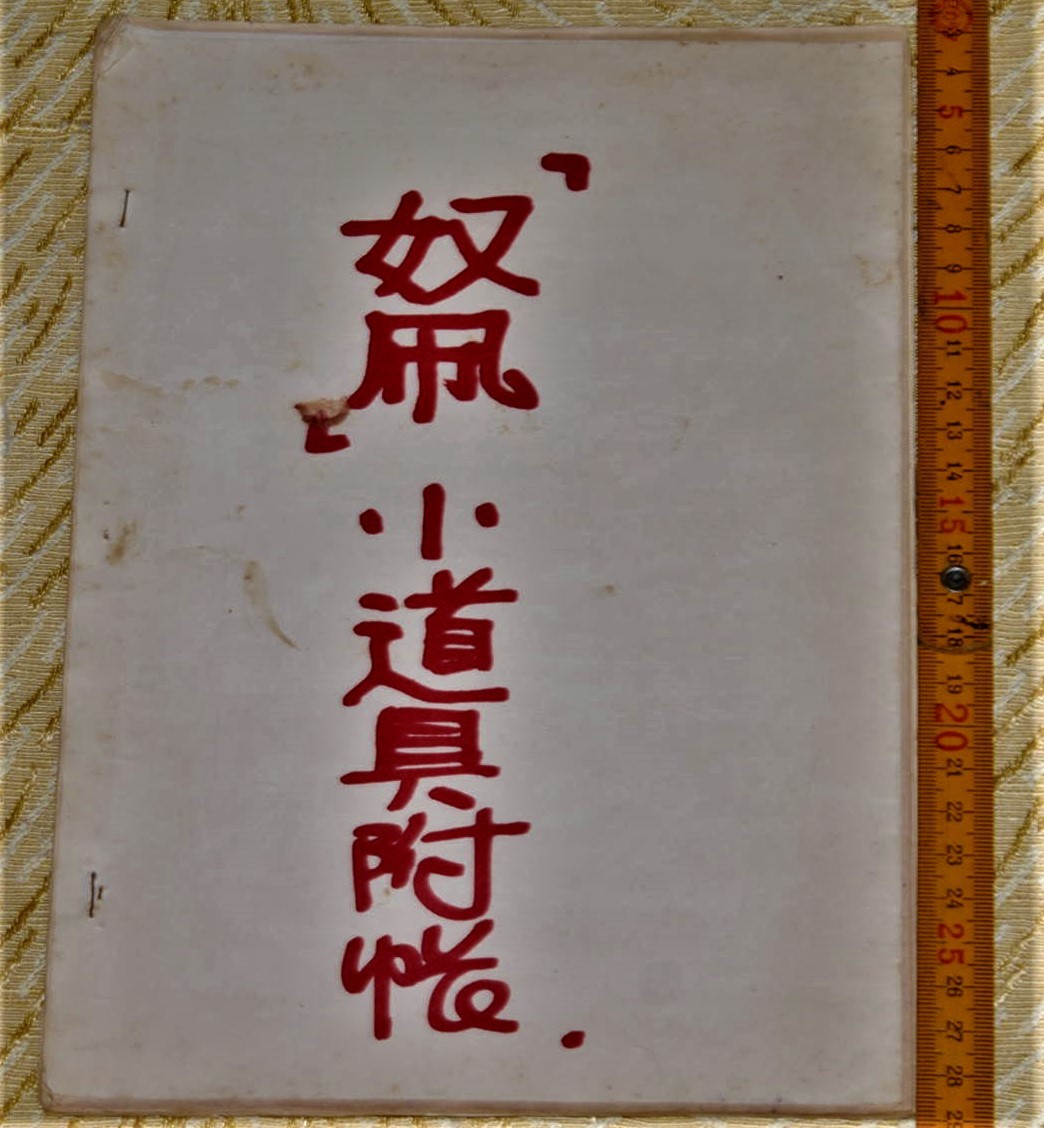 「奴凧」小道具附帳.
3
4
5
6
7
8
9
10
11
12
13
14
15
16
7
18
19
20
21
22
23
24
25
26
27
28